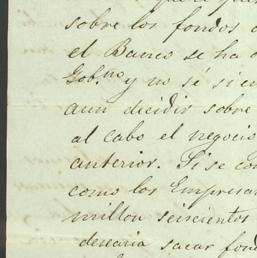 sobre los fondos
el Banco se ha
Gob.no y no sé si
aun decidir sobre
al cabo el negocio
anterior. Si se
como los Empresar
millon seiscientos
desearia sacar fond